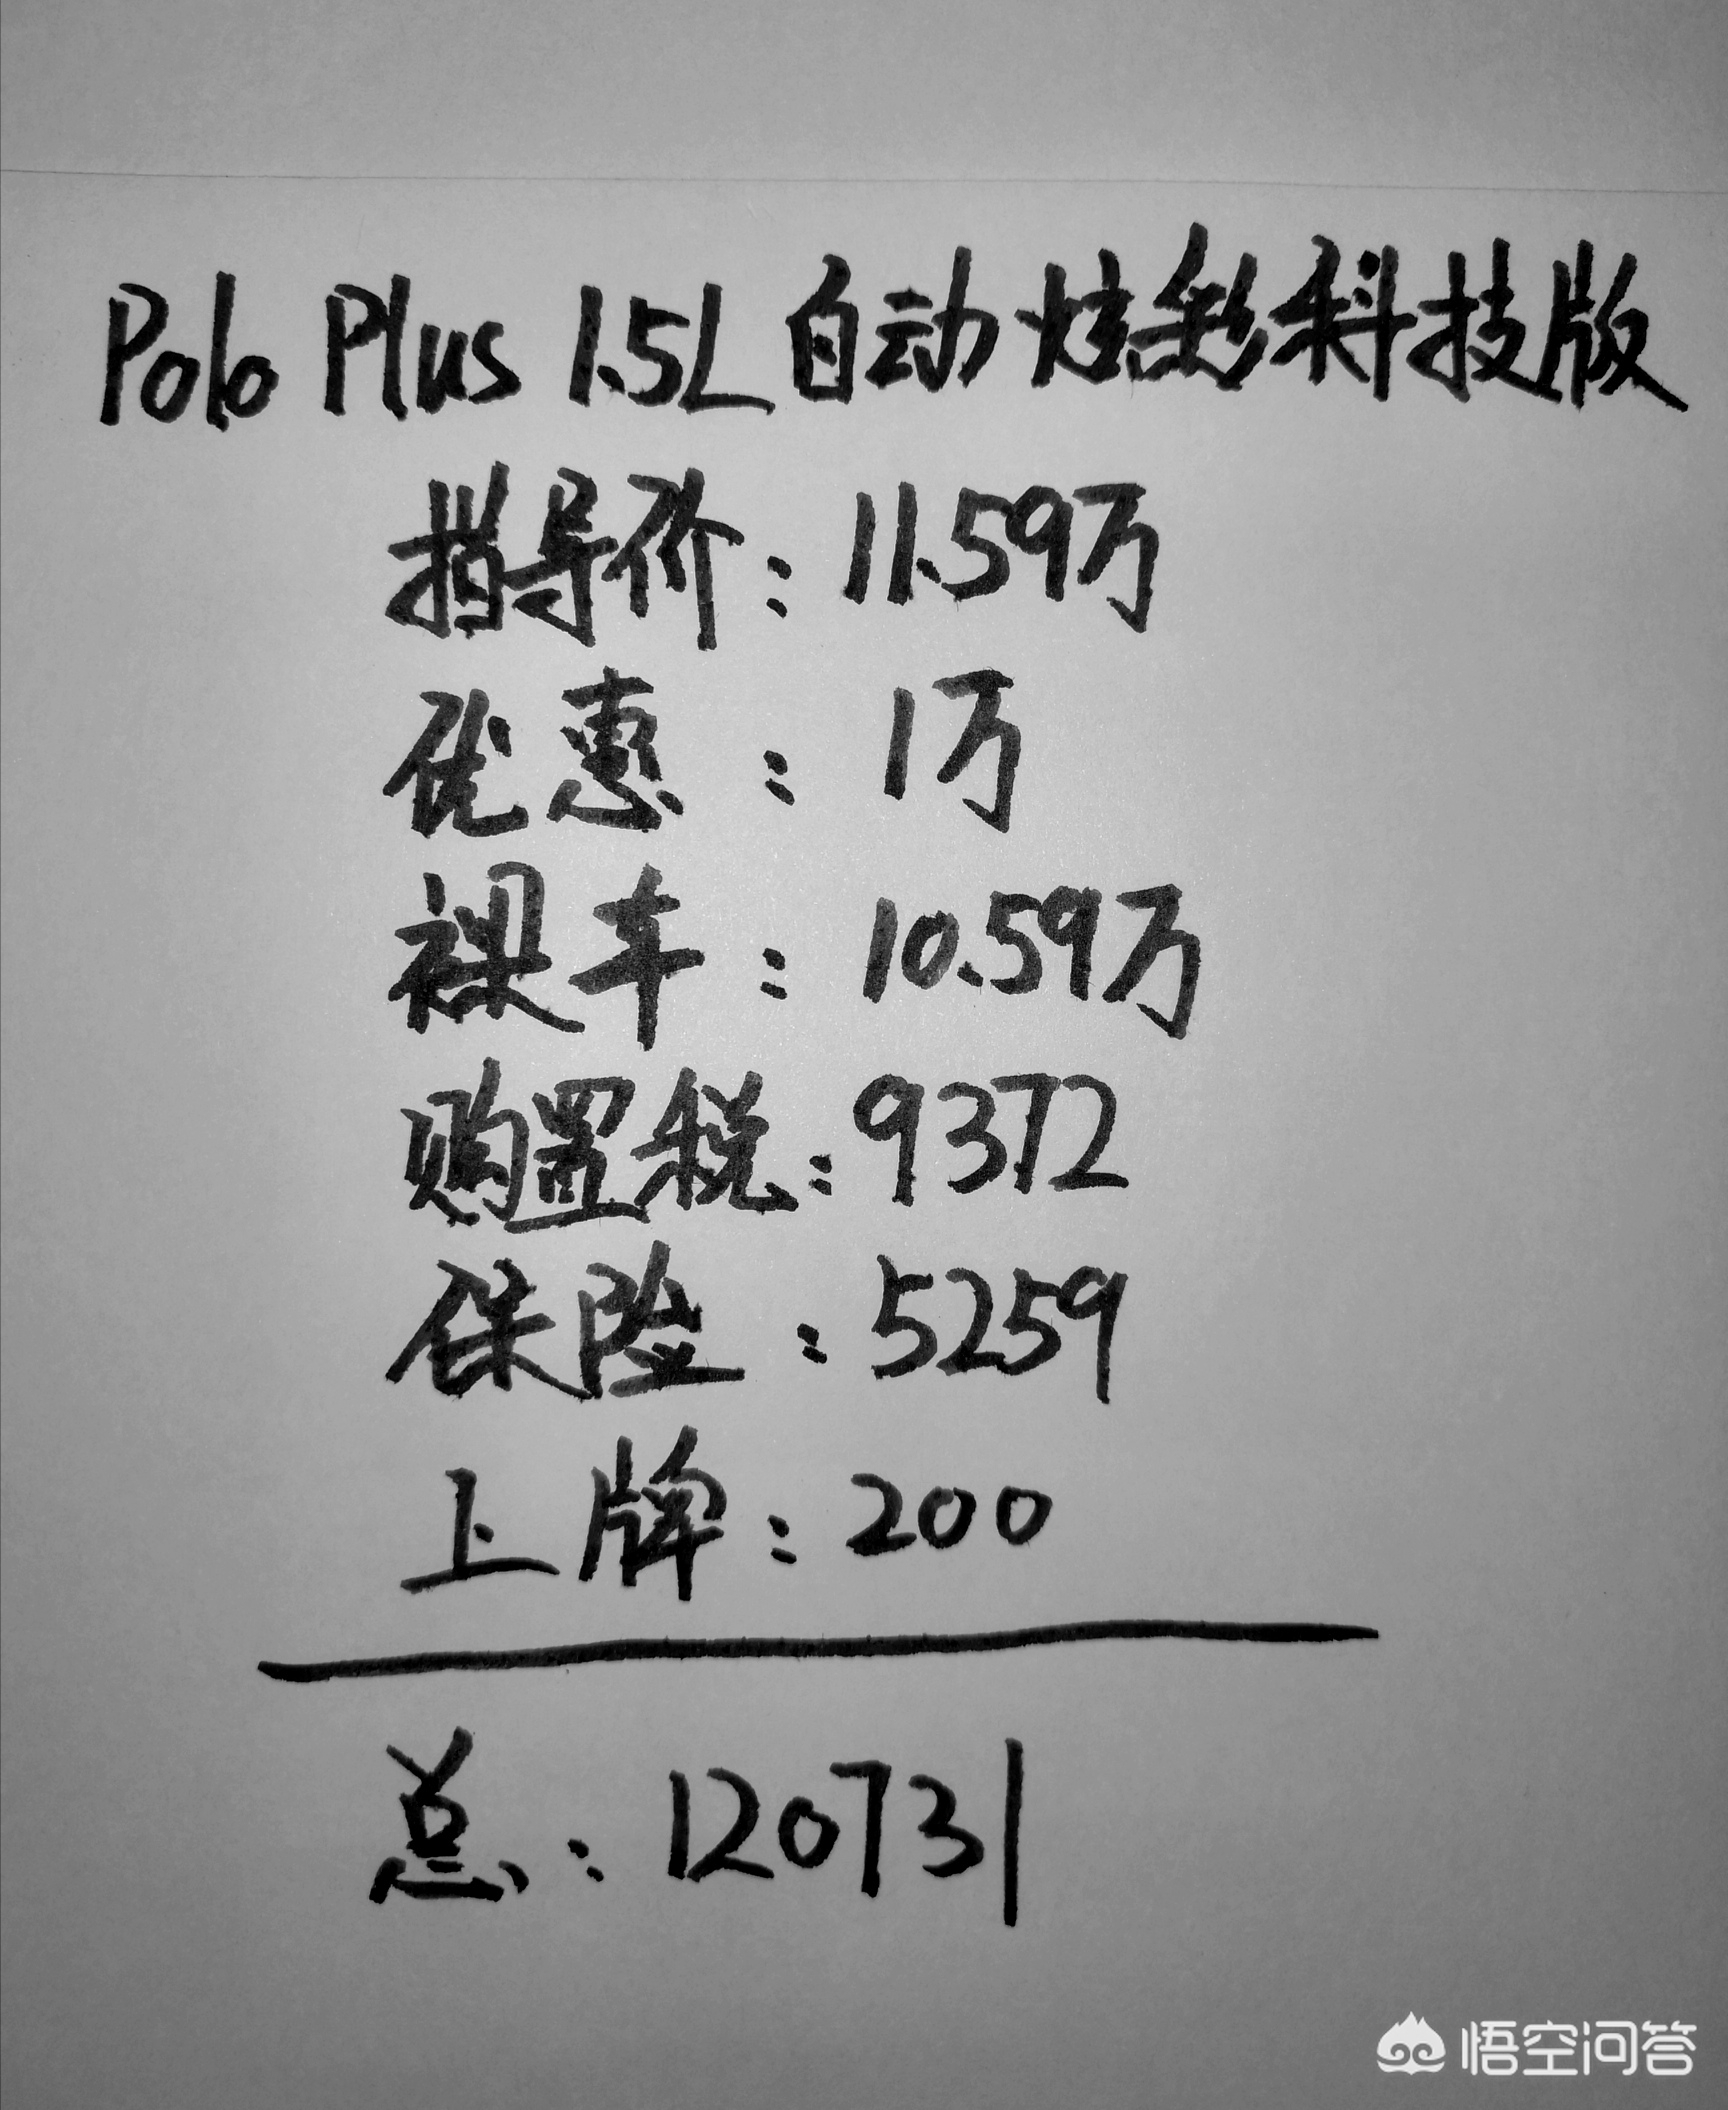 Polo Plus 1.5L 自动炫彩科技版
指导价：11.59万
优惠：1万
裸车：10.59万
购置税：9372
保险：5259
上牌：200
总：120731
悟空问答